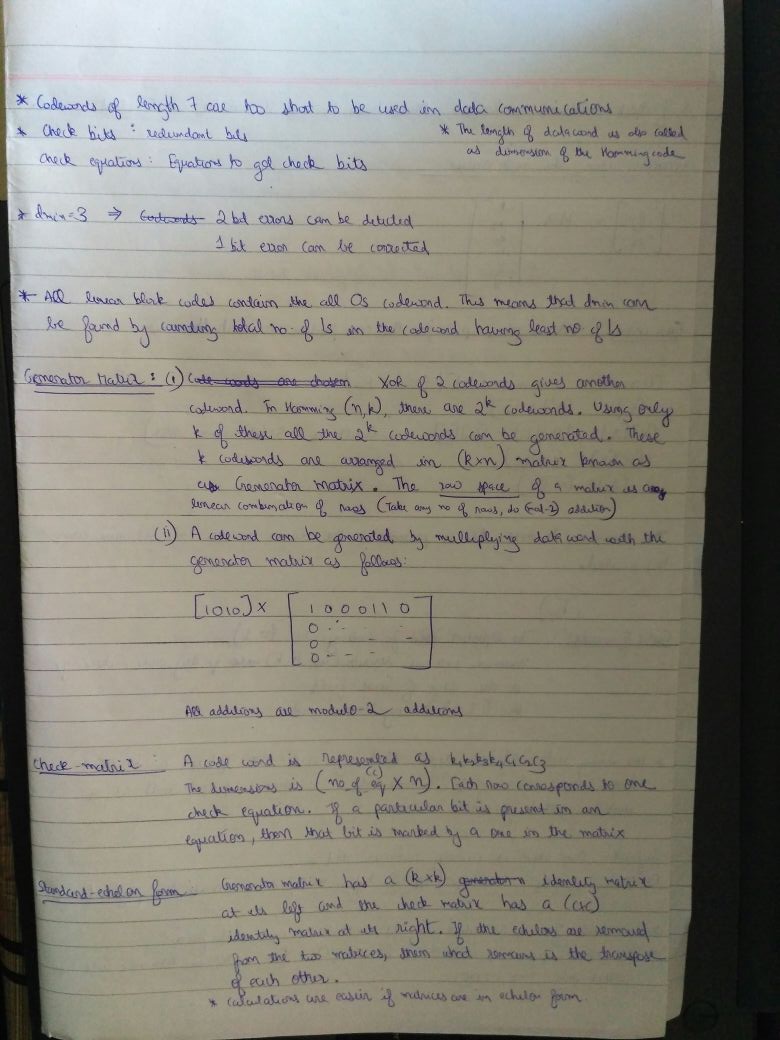 * Codewords of length 7 are too short to be used in data communications
* Check bits : redundant bits
* The length of dataword is also called
as dimension of the Hamming code
Check equations : Equations to get check bits
* dmin=3 ⇒ Codewords 2 bit errors can be detected
1 bit error can be corrected
* All linear block codes contain the all 0s codeword. This means that dmin can
be found by counting total no. of 1s in the codeword having least no of 1s
Generator Matrix : (i) Code words are chosen XOR of 2 codewords gives another
codeword. In Hamming (n,k), there are 2^k codewords. Using only
k of these all the 2^k codewords can be generated. These
k codewords are arranged in (k×n) matrix known as
Generator matrix. The row space of a matrix is any
linear combination of rows (Take any no of rows, do (mod-2) addition)
(ii) A codeword can be generated by multiplying data word with the
generator matrix as follows:
[1010] × [ 1 0 0 0 1 1 0
0
0
0 ]
All additions are modulo-2 additions
Check-matrix : A code word is represented as k1k2k3k4c1c2c3
The dimensions is (no of eq (c) × n). Each row corresponds to one
check equation. If a particular bit is present in an
equation, then that bit is marked by a one in the matrix
Standard-echelon form : Generator matrix has a (k×k) generator identity matrix
at its left and the check matrix has a (c×c)
identity matrix at its right. If the echelons are removed
from the two matrices, then what remains is the transpose
of each other.
* Calculations are easier if matrices are in echelon form.